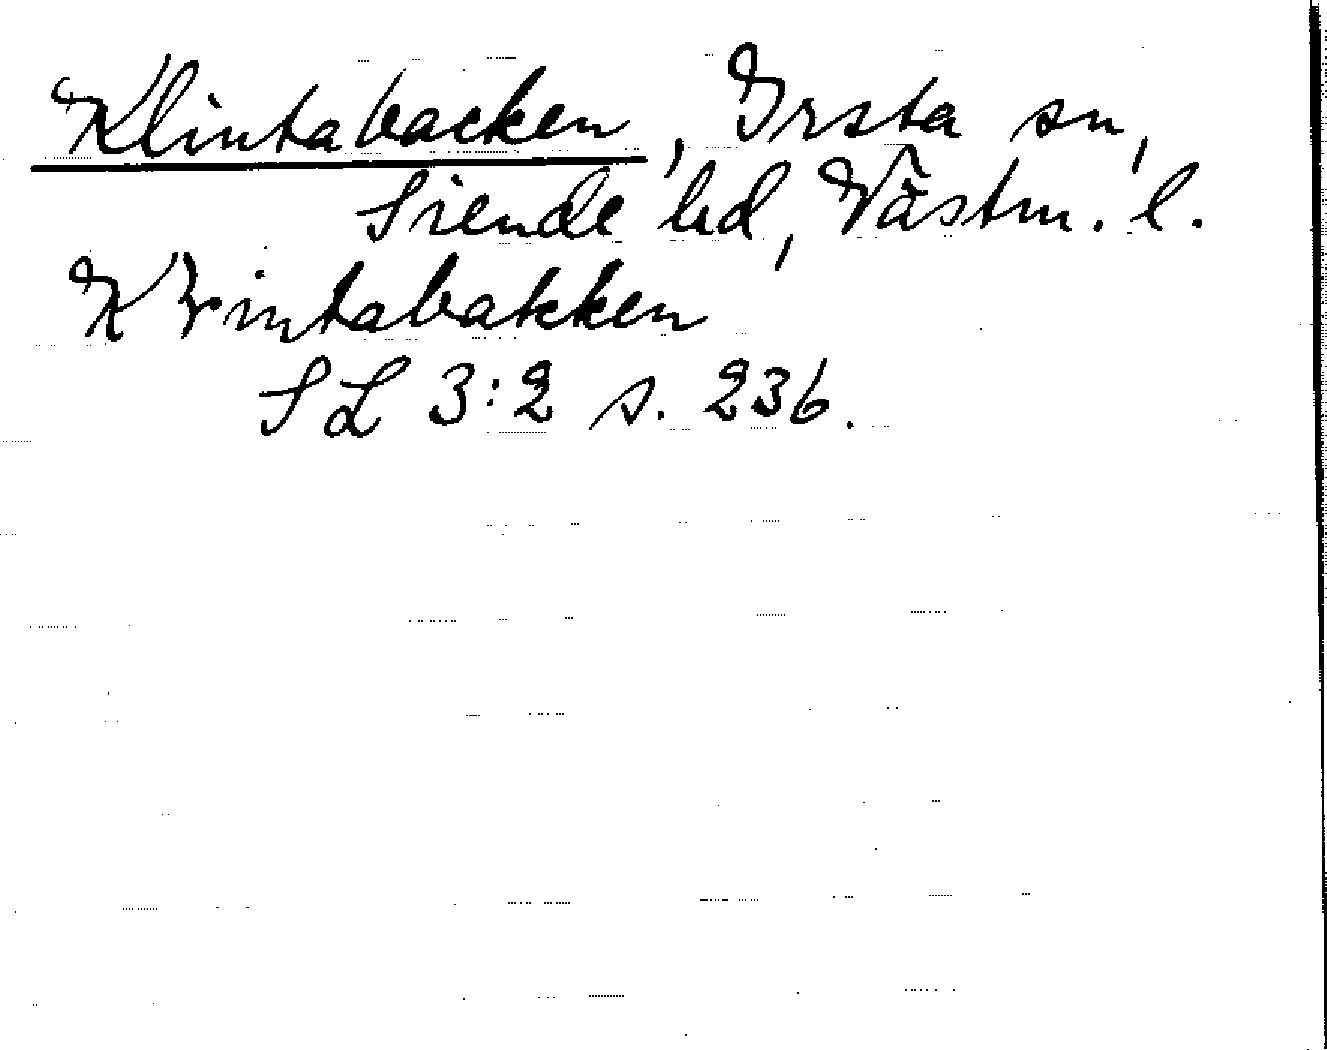 Klintabacken, Irsta sn,
Siende hd, Västm. l.
Klintabakken
SL 3:2 s. 236.